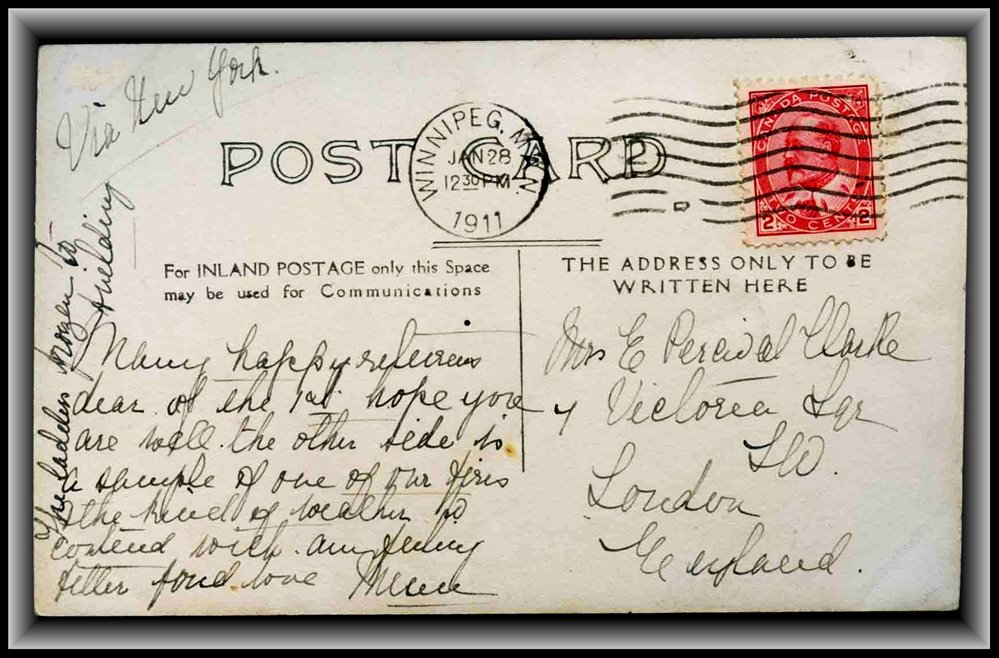 Via New York.
POST CARD
WINNIPEG, MAN.
JAN 28
12 30 PM
1911
CANADA POSTAGE
2 TWO CENTS 2
For INLAND POSTAGE only this Space
may be used for Communications
THE ADDRESS ONLY TO BE
WRITTEN HERE
The ladders frozen to
building
Many happy returns
dear of the 1st. hope you
are well. the other side is
a sample of one of our fires
& the kind of weather to
contend with. am
fond love
Mrs E Percival Clarke
4 Victoria Sqr
S.W.
London
England.